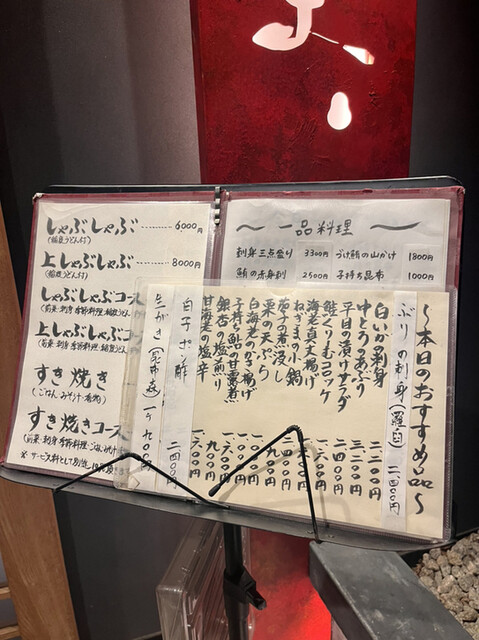 しゃぶしゃぶ ------ 6000円
(稲庭うどん付)
上しゃぶしゃぶ ------ 8000円
(稲庭うどん付)
しゃぶしゃぶコース
(前菜・刺身・季節料理・稲庭うどん
上しゃぶしゃぶコ
(前菜・刺身・季節料理・稲庭うどん
すき焼き
(ごはん、みそ汁・香物)
すき焼きコース
(前菜・刺身・季節料理・ごはん・みそ汁
※サービス料として別途
〜一品料理〜
刺身三点盛り 3300円
づけ鮪の山かけ 1800円
鮪の赤身刺 2500円
子持ち昆布 1000円
〜本日のおすすめ品〜
ぶりの刺身(羅臼) 二、四〇〇円
白いかの刺身
中とろのあぶり
平目の漬けサラダ
鮭くりーむコロッケ
海老真丈揚げ
ねぎまの小鍋
茄子の煮浸し
栗の天ぷら
白海老のから揚げ
子持ち鮎の甘露煮
銀杏の塩煎り
甘海老の塩辛
白子ポン酢 二、四〇〇円
生がき(昆布森) 一ヶ 九〇〇円